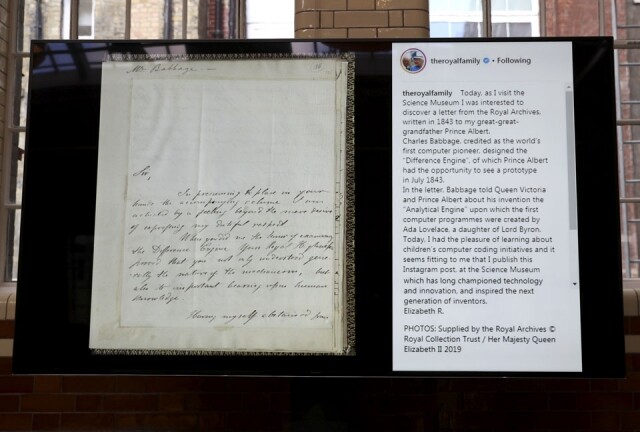 Mr. Babbage
Sir,
In presuming to place in your
hands the accompanying volume I am
actuated by a feeling beyond the mere desire
of expressing my dutiful respect.
When you did me the honor of examining
the Difference Engine Your Royal Highness
proved that you not only understood
only the nature of the mechanism, but
also its important bearings upon human
knowledge.
Having myself
theroyalfamily • Following
theroyalfamily Today, as I visit the
Science Museum I was interested to
discover a letter from the Royal Archives,
written in 1843 to my great-great-
grandfather Prince Albert.
Charles Babbage, credited as the world's
first computer pioneer, designed the
"Difference Engine", of which Prince Albert
had the opportunity to see a prototype
in July 1843.
In the letter, Babbage told Queen Victoria
and Prince Albert about his invention the
"Analytical Engine" upon which the first
computer programmes were created by
Ada Lovelace, a daughter of Lord Byron.
Today, I had the pleasure of learning about
children's computer coding initiatives and it
seems fitting to me that I publish this
Instagram post, at the Science Museum
which has long championed technology
and innovation, and inspired the next
generation of inventors.
Elizabeth R.
PHOTOS: Supplied by the Royal Archives ©
Royal Collection Trust / Her Majesty Queen
Elizabeth II 2019